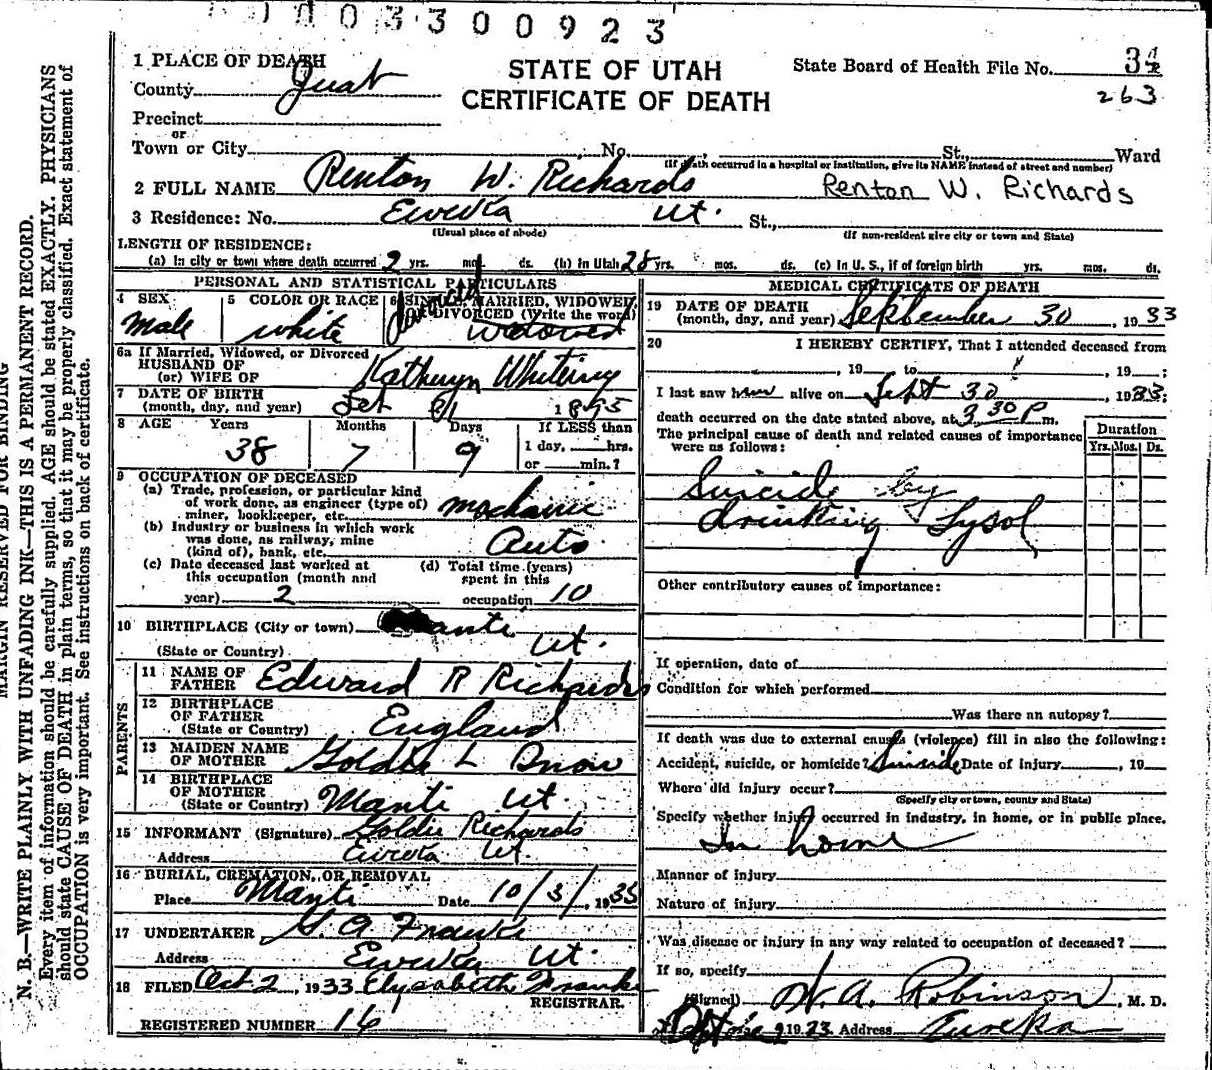 0003300923
1 PLACE OF DEATH
County Juab
STATE OF UTAH
CERTIFICATE OF DEATH
State Board of Health File No. 34
263
Precinct
or
Town or City No. St., Ward
(If death occurred in a hospital or institution, give its NAME instead of street and number)
2 FULL NAME Renton W. Richards Renton W. Richards
3 Residence: No. Eureka Ut. St.,
(Usual place of abode) (If non-resident give city or town and State)
LENGTH OF RESIDENCE:
(a) In city or town where death occurred 2 yrs. mos. ds. (b) In Utah 28 yrs. mos. ds. (c) In U. S., if of foreign birth yrs. mos. ds.
PERSONAL AND STATISTICAL PARTICULARS
4 SEX 5 COLOR OR RACE 6 SINGLE, MARRIED, WIDOWED, OR DIVORCED (Write the word)
Male white Divorced widowed
6a If Married, Widowed, or Divorced
HUSBAND OF
(or) WIFE OF Kathryn Whiting
7 DATE OF BIRTH
(month, day, and year) Feb 21 1895
8 AGE Years Months Days If LESS than
1 day, hrs.
or min.?
38 7 9
9 OCCUPATION OF DECEASED
(a) Trade, profession, or particular kind
of work done, as engineer (type of)
miner, bookkeeper, etc. mechanic
(b) Industry or business in which work
was done, as railway, mine
(kind of), bank, etc. Auto
(c) Date deceased last worked at
this occupation (month and
year) 2
(d) Total time (years)
spent in this
occupation 10
10 BIRTHPLACE (City or town) Manti
(State or Country) Ut.
PARENTS
11 NAME OF
FATHER Edward R Richards
12 BIRTHPLACE
OF FATHER
(State or Country) England
13 MAIDEN NAME
OF MOTHER Goldie L Snow
14 BIRTHPLACE
OF MOTHER
(State or Country) Manti Ut.
15 INFORMANT (Signature) Goldie Richards
Address Eureka Ut.
16 BURIAL, CREMATION, OR REMOVAL
Place Manti Date 10/3/, 1933
17 UNDERTAKER G. A. Franke
Address Eureka Ut.
18 FILED Oct 2, 1933 Elizabeth Franke
REGISTRAR.
REGISTERED NUMBER 16
MEDICAL CERTIFICATE OF DEATH
19 DATE OF DEATH
(month, day, and year) September 30, 1933
20 I HEREBY CERTIFY, That I attended deceased from
, 19 to , 19 ;
I last saw him alive on Sept 30, 1933;
death occurred on the date stated above, at 3 30 P m.
The principal cause of death and related causes of importance
were as follows:
Duration
Yrs. Mos. Ds.
Suicide by
drinking Lysol
Other contributory causes of importance:
If operation, date of
Condition for which performed
Was there an autopsy?
If death was due to external causes (violence) fill in also the following:
Accident, suicide, or homicide? Suicide Date of injury , 19
Where did injury occur?
(Specify city or town, county and State)
Specify whether injury occurred in industry, in home, or in public place.
In home
Manner of injury
Nature of injury
Was disease or injury in any way related to occupation of deceased?
If so, specify
(Signed) A. Robinson, M. D.
19 33 Address Eureka
MARGIN RESERVED FOR BINDING
N. B.—WRITE PLAINLY WITH UNFADING INK—THIS IS A PERMANENT RECORD.
Every item of information should be carefully supplied. AGE should be stated EXACTLY. PHYSICIANS
should state CAUSE OF DEATH in plain terms, so that it may be properly classified. Exact statement of
OCCUPATION is very important. See instructions on back of certificate.